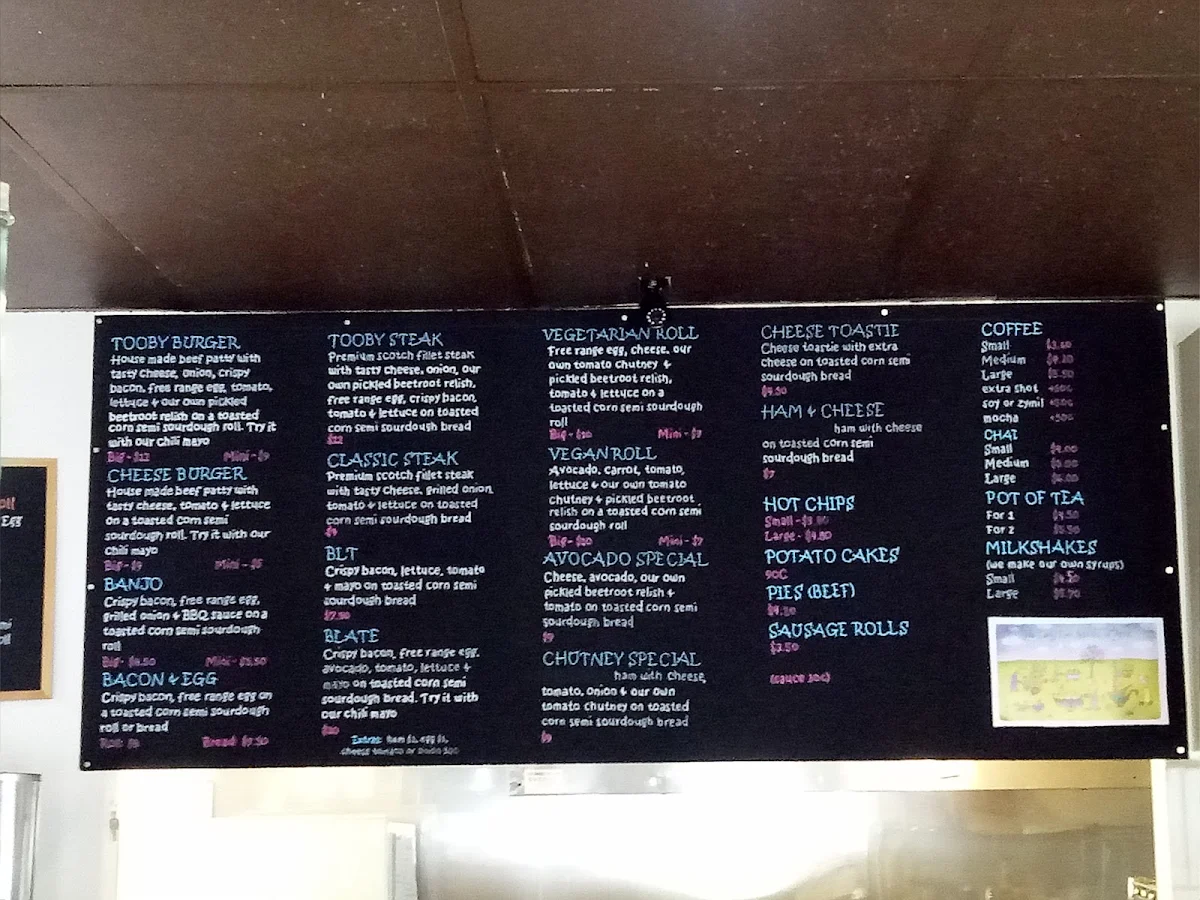 TOOBY BURGER
House made beef patty with
tasty cheese, onion, crispy
bacon, free range egg, tomato,
lettuce & our own pickled
beetroot relish on a toasted
corn semi sourdough roll. Try it
with our chili mayo
Big - $12 Mini - $9
CHEESE BURGER
House made beef patty with
tasty cheese, tomato & lettuce
on a toasted corn semi
sourdough roll. Try it with our
chili mayo
Big - $9 Mini -
BANJO
Crispy bacon, free range egg,
grilled onion & BBQ sauce on a
toasted corn semi sourdough
roll
Big - Mini - $5.50
BACON & EGG
Crispy bacon, free range egg on
a toasted corn semi sourdough
roll or bread
Roll: Bread: $7.50
TOOBY STEAK
Premium scotch fillet steak
with tasty cheese, onion, our
own pickled beetroot relish,
free range egg, crispy bacon,
tomato & lettuce on toasted
corn semi sourdough bread
$12
CLASSIC STEAK
Premium scotch fillet steak
with tasty cheese, grilled onion,
tomato & lettuce on toasted
corn semi sourdough bread
$9
BLT
Crispy bacon, lettuce, tomato
& mayo on toasted corn semi
sourdough bread
$7.50
BLATE
Crispy bacon, free range egg,
avocado, tomato, lettuce &
mayo on toasted corn semi
sourdough bread. Try it with
our chili mayo
$10
Extras: egg $1,
cheese tomato or onion 50c
VEGETARIAN ROLL
Free range egg, cheese, our
own tomato chutney &
pickled beetroot relish,
tomato & lettuce on a
toasted corn semi sourdough
roll
Big - $10 Mini - $7
VEGAN ROLL
Avocado, carrot, tomato,
lettuce & our own tomato
chutney & pickled beetroot
relish on a toasted corn semi
sourdough roll
Big - $10 Mini - $7
AVOCADO SPECIAL
Cheese, avocado, our own
pickled beetroot relish &
tomato on toasted corn semi
sourdough bread
$9
CHUTNEY SPECIAL
ham with cheese,
tomato, onion & our own
tomato chutney on toasted
corn semi sourdough bread
$9
CHEESE TOASTIE
Cheese toastie with extra
cheese on toasted corn semi
sourdough bread
HAM & CHEESE
ham with cheese
on toasted corn semi
sourdough bread
$7
HOT CHIPS
Small -
Large - $4.80
POTATO CAKES
90C
PIES (BEEF)
SAUSAGE ROLLS
$3.50
(sauce 30c)
COFFEE
Small
Medium
Large
extra shot +50c
soy or zymil +50c
mocha +50c
CHAI
Small $4.00
Medium $5.00
Large $6.00
POT OF TEA
For 1 $4.50
For 2
MILKSHAKES
(we make our own syrups)
Small $4.50
Large